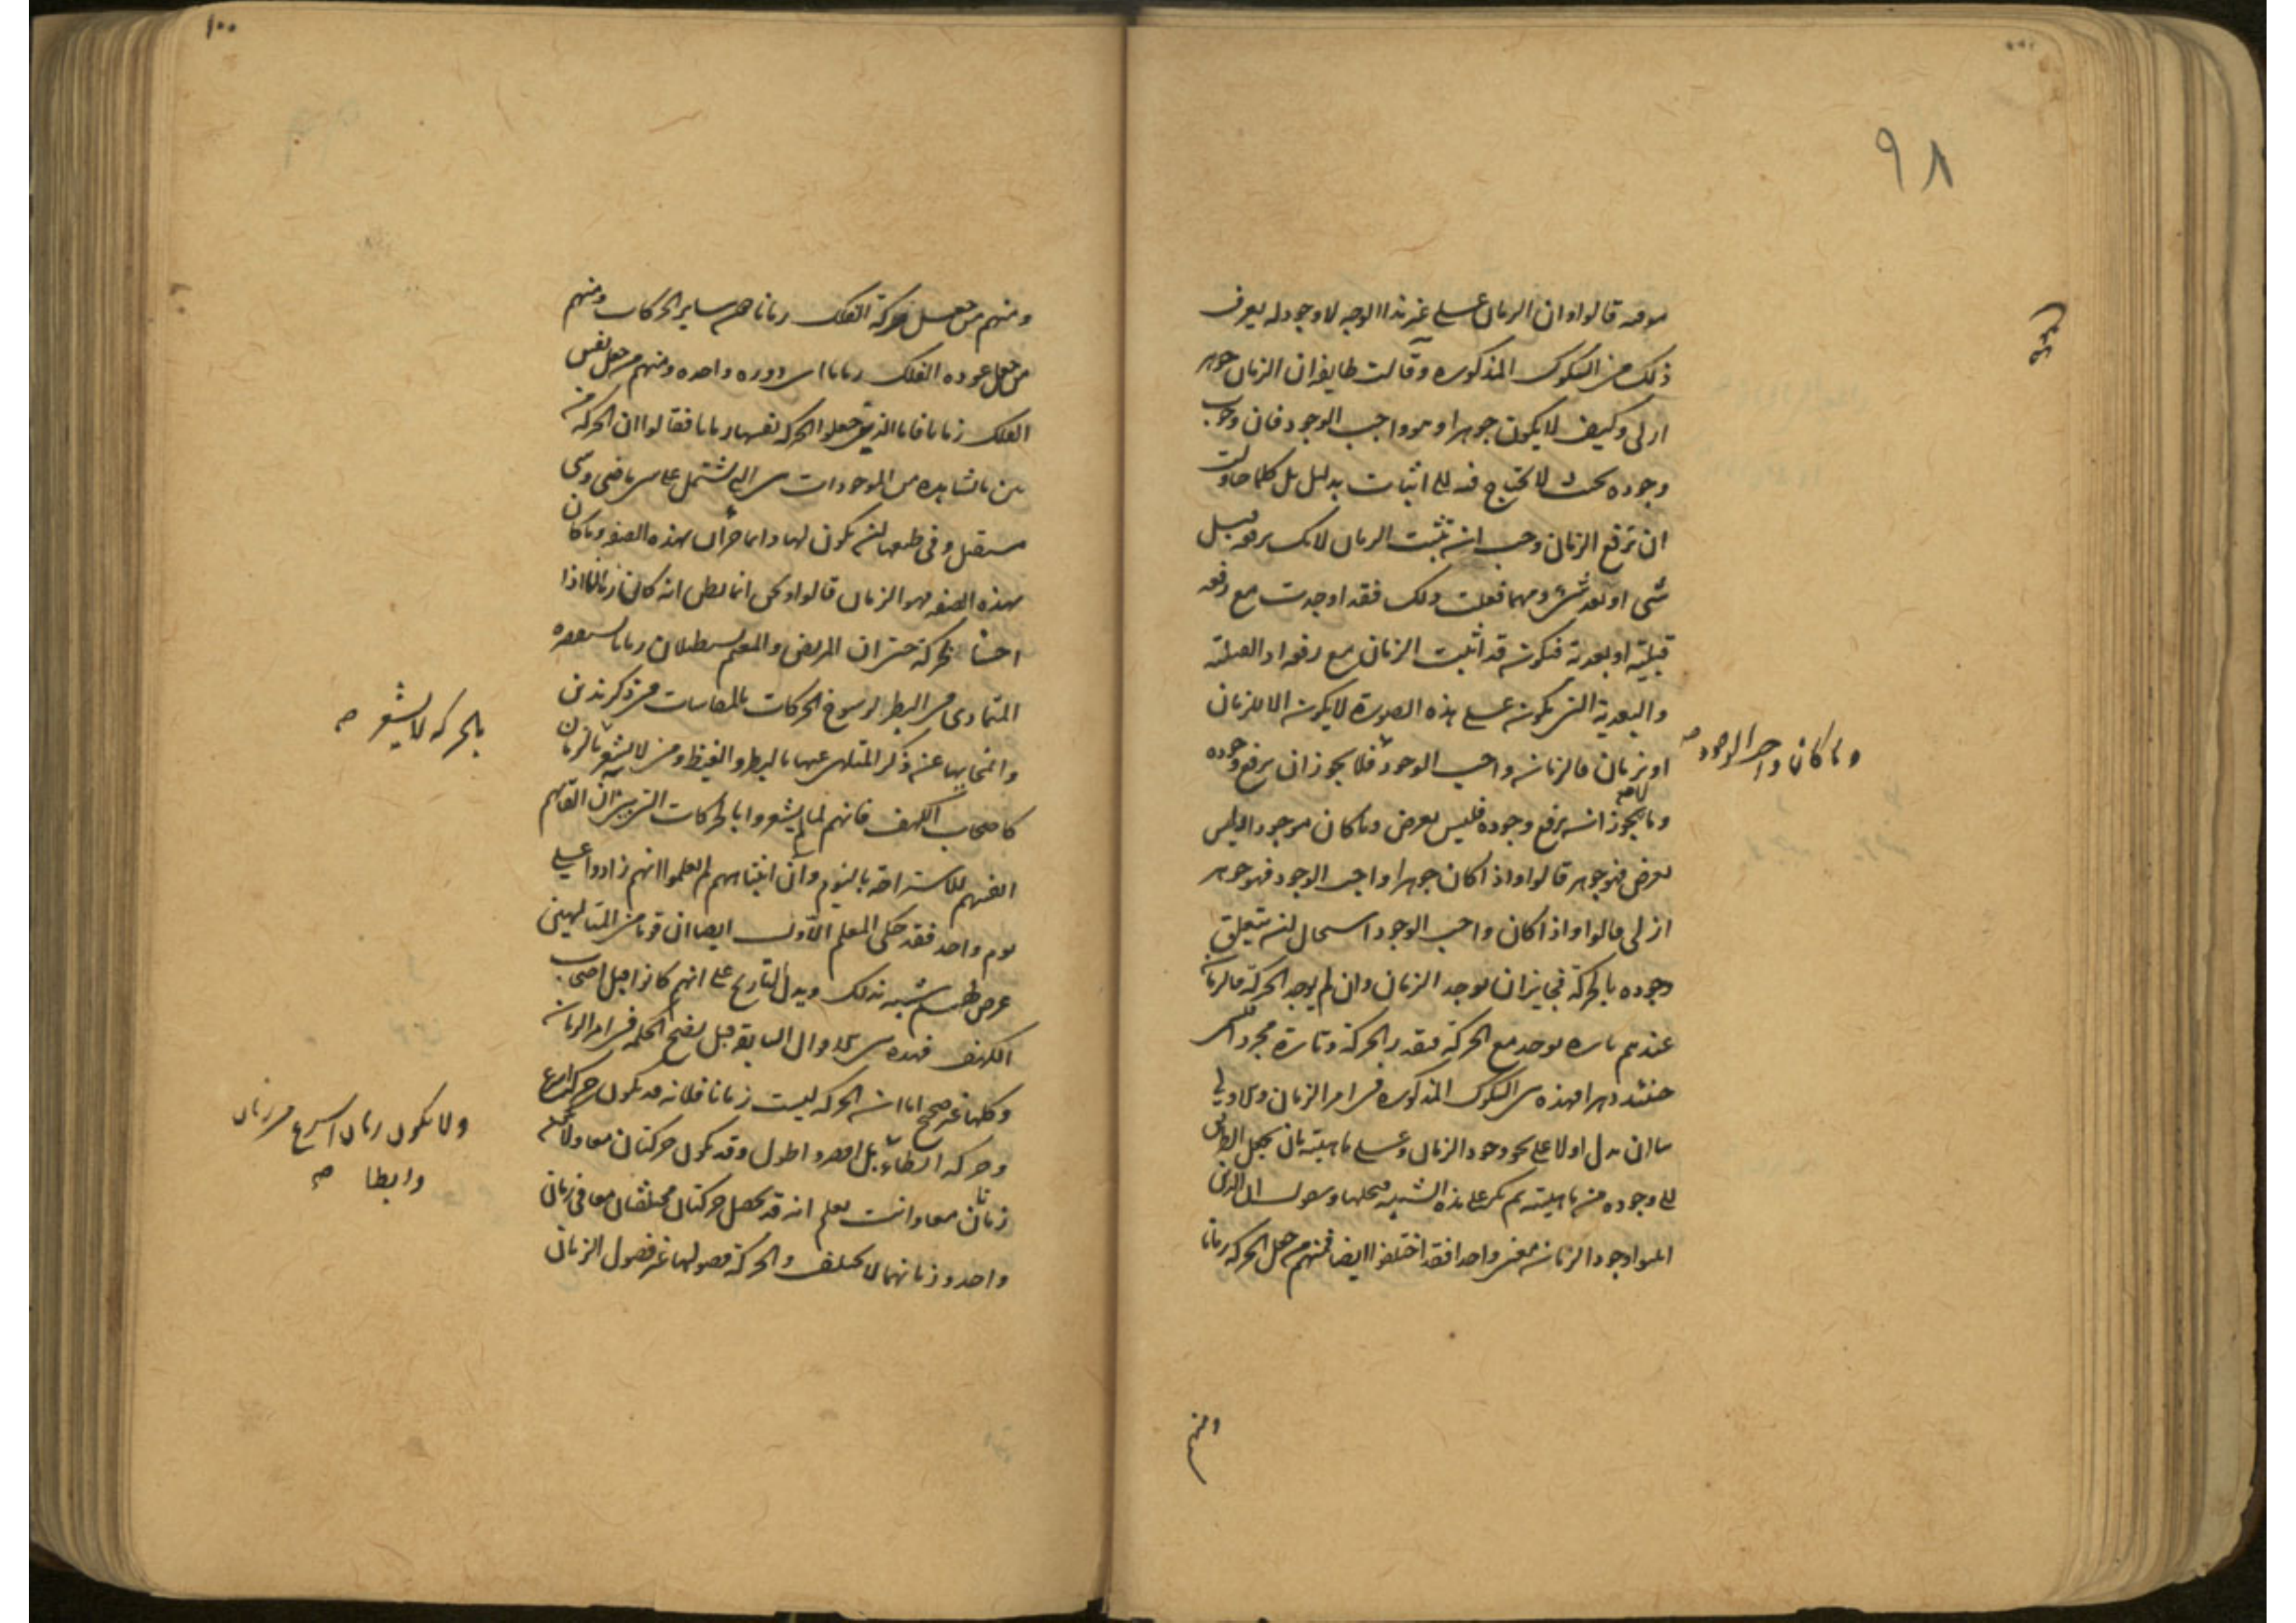 ٩٨
موقت قالوا وان الزمان على غير هذا الوجه لا وجود له يعرف
ذلك من الشكوك المذكورة وقالت طايفة ان الزمان جوهر
ازلى وكيف لا يكون جوهرا وهو واجب الوجود فان وجوب
وجوده بحيث لا تحتاج فيه الى اثبات بدليل بل كلما حاولت
ان ترفع الزمان وجب ان تثبت الزمان لانك ترفعه قبيل
شى او بعد شى ومهما فعلت ذلك فقد اوجدت مع رفعه
قبلية او بعدية فيكون قد اثبت الزمان مع رفعه اذ القبلية
والبعدية التى يكون على هذه الصورة لا يكون الا للزمان
او بزمان فالزمان واجب الوجود فلا يجوز ان يرفع وجوده
وما كان واجب الوجود صح
وما لا يجوز ان يرفع وجوده فليس بعرض وما كان موجودا وليس
بعرض فهو جوهر قالوا واذا كان جوهرا واجب الوجود فهو جوهر
ازلى قالوا واذا كان واجب الوجود استحال ان يتعلق
وجوده بالحركة فجايز ان يوجد الزمان وان لم يوجد الحركة فالزمان
عندهم تارة يوجد مع الحركة فيقدر الحركة وتارة مجردا
حينئذ دهرا فهذه هى الشكوك المذكورة فى امر الزمان والاولى
بنا ان ندل اولا على نحو وجود الزمان وعلى ماهيته بان نجعل الطريق
الى وجوده من ماهيته ثم نكر على هذه الشبه فنحلها ونقول ان الذين
اثبتوا وجود الزمان معنى واحدا فقد اختلفوا ايضا فمنهم من جعل الحركة زمانا
ومنهم
١٠٠
ومنهم من جعل حركة الفلك زمانا دون ساير الحركات ومنهم
من جعل عودة الفلك زمانا اى دورة واحدة ومنهم من جعل نفس
الفلك زمانا فاما الذين جعلوا الحركة نفسها زمانا فقالوا ان الحركة من
بين ما نشاهده من الموجودات هى التى تشتمل على شى ماض وشى
مستقبل وفى طبعها ان يكون لها دايما جزآن بهذه الصفة وما كان
بهذه الصفة فهو الزمان قالوا ونحن انما نظن انه كان زمان اذا
احسسنا بحركة حتى ان المريض والمغتم يستطيلان زمانا يستقصره
المتمادى فى البطر لرسوخ الحركات المقاسات فى ذكر هذين
وانمحايها عن ذكر المتلهى عنها بالبطر والغبطة ومن لا يشعر بالزمان
بالحركة لا يشعر صح
كاصحاب الكهف فانهم لما لم يشعروا بالحركات التى بين آن القايهم
انفسهم للاستراحة بالنوم وآن انتباههم لم يعلموا انهم زادوا على
يوم واحد فقد حكى المعلم الاول ايضا ان قوما من المتالهين
عرض لهم شبيه بذلك ويدل التاريخ على انهم كانوا قبل اصحاب
الكهف فهذه هى الاقوال السابقة قبل نضج الحكمة فى امر الزمان
وكلها غير صحيح اما ان الحركة ليست زمانا فلانه قد يكون حركة اسرع
وحركة ابطاء بل اقصر واطول وقد يكون حركتان معا ولا يكون
ولا يكون زمان اسرع من زمان
وابطا صح
زمانان معا وانت تعلم انه قد يحصل حركتان مختلفتان معا فى زمان
واحد وزمانهما لا يختلف والحركة فصولها غير فصول الزمان